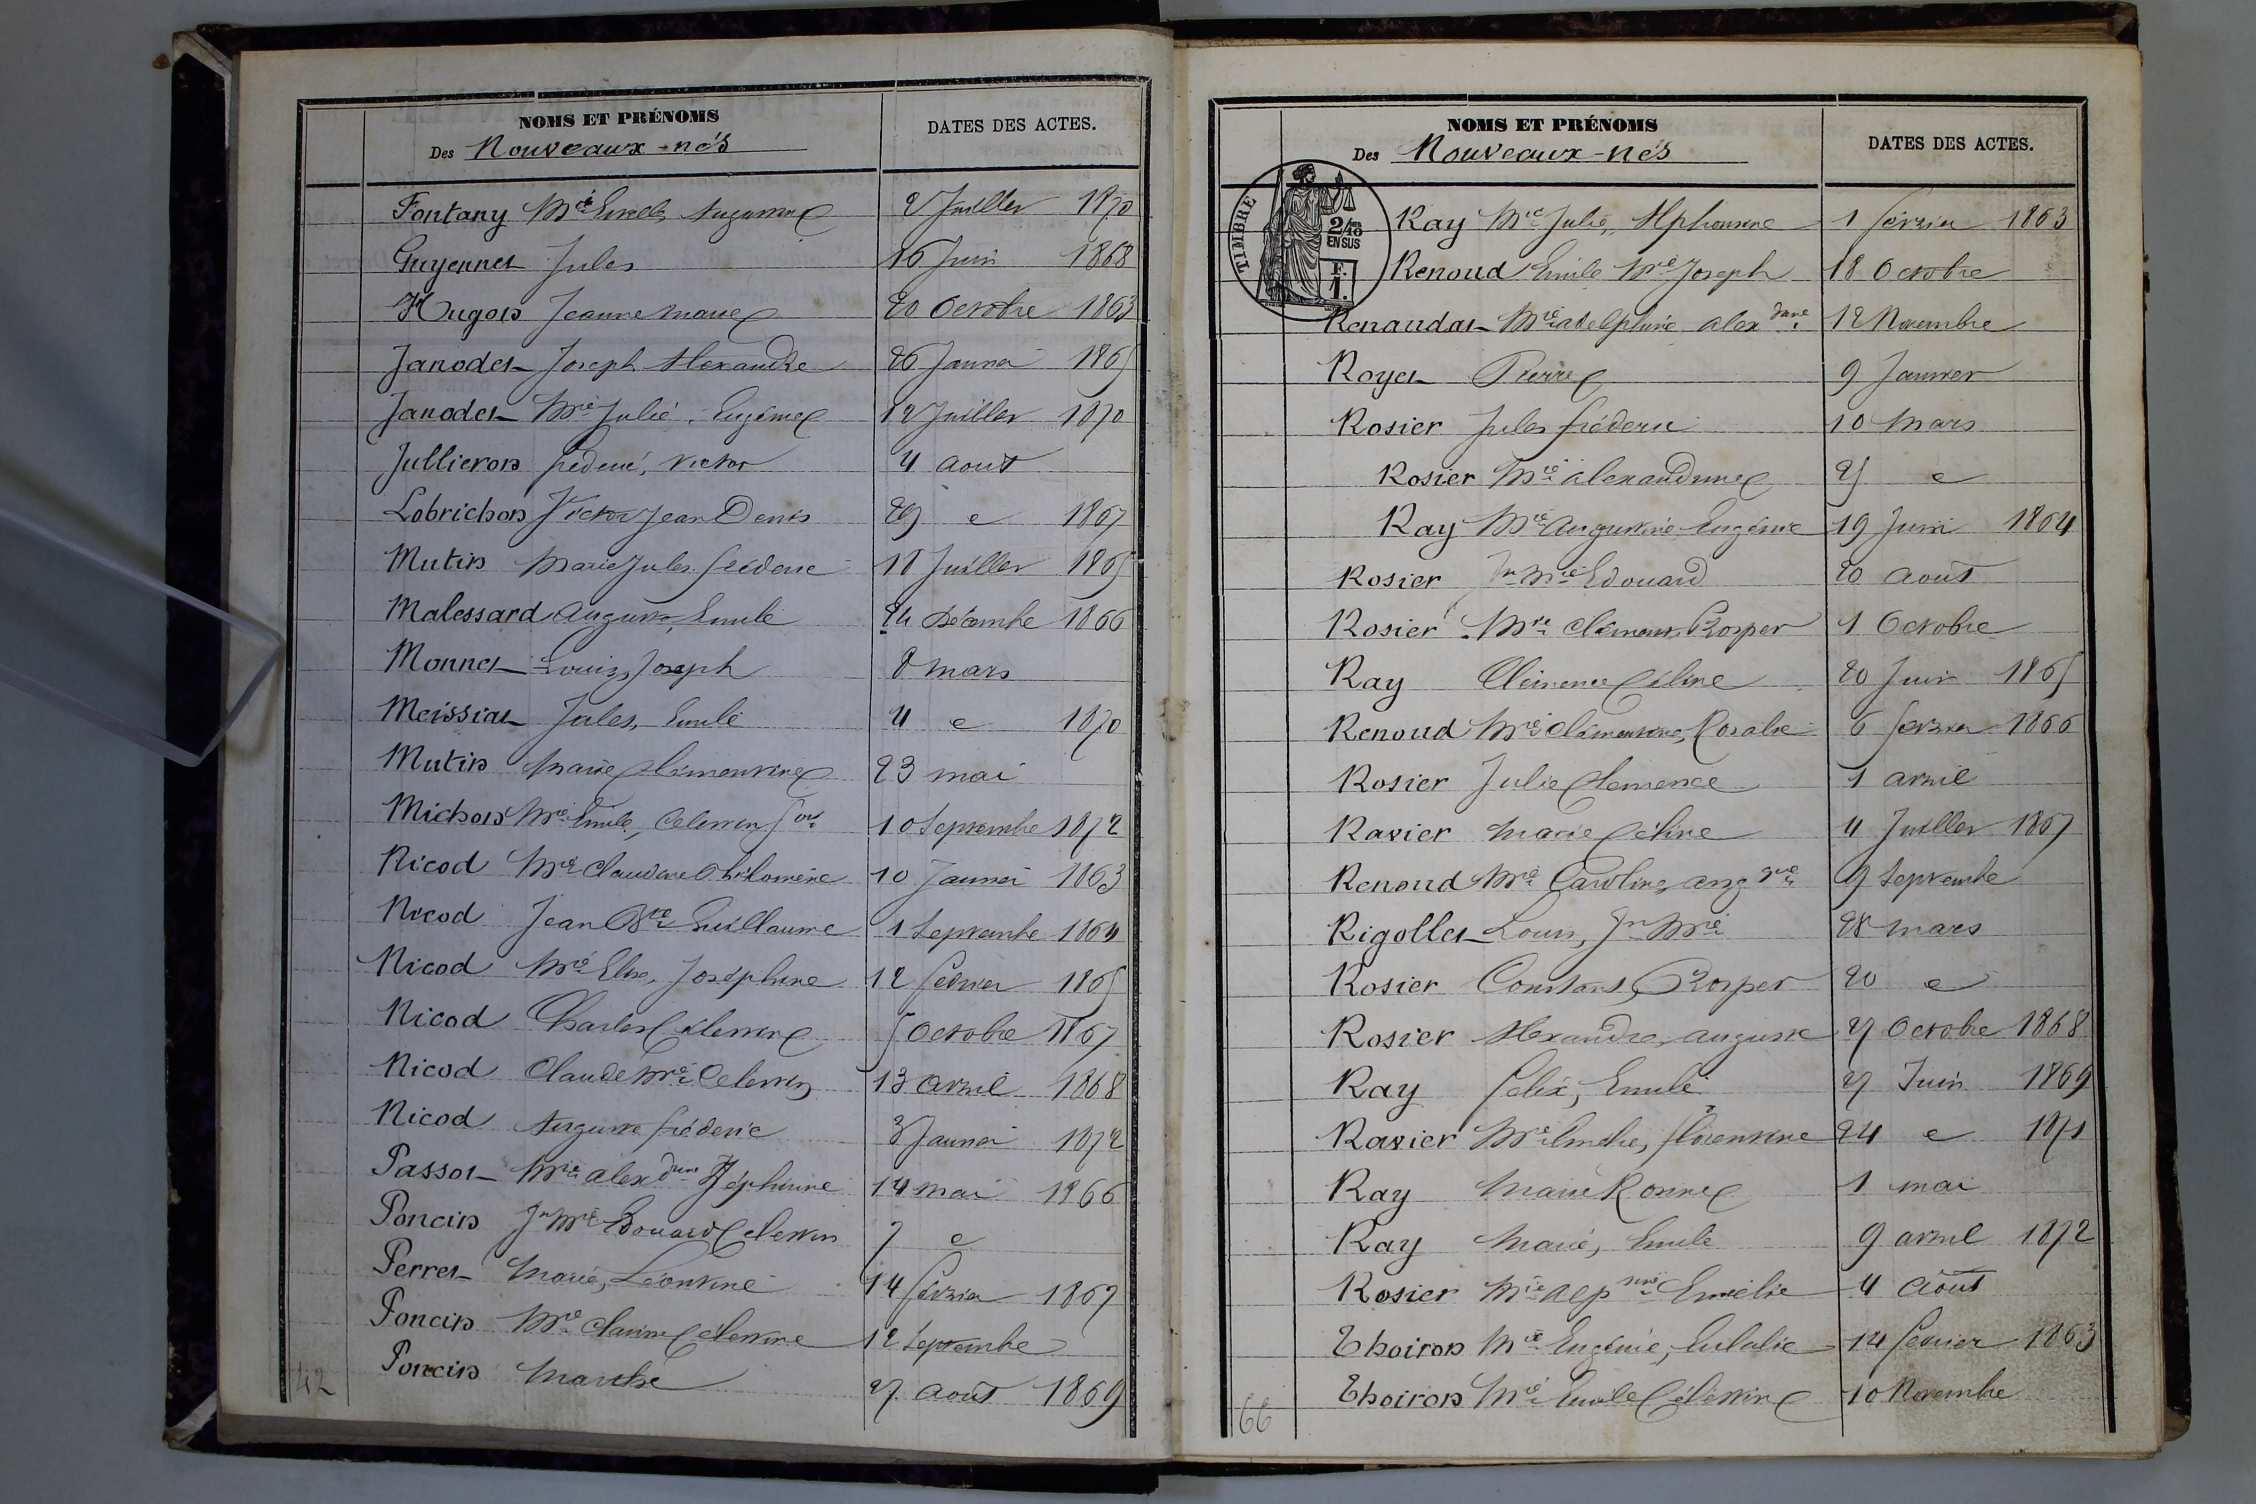 NOMS ET PRÉNOMS
DATES DES ACTES.
Des Nouveaux-nés
Fontany Mie Emele 2 Juillet 1870
Guyennet Jules 16 Juin 1868
Hugon Jeanne marie 20 Octobre 1863
Janodet Joseph Alexandre 26 Janvier 1865
Janodet Mie Julie, Eugénie 12 Juillet 1870
Jullieron fréderic, victor 4 aout
Lobrichon Victor Jean Denis 29 e 1867
Mutin Marie Jules fréderic 18 Juillet 1865
Malessard Auguste, Emile 24 Décembre 1866
Monnet Louis, Joseph 8 mars
Meissiat Jules, Emile 4 e 1870
Mutin Marie Clémentine 23 mai
Michon Mie Emile, Celestin 10 Septembre 1872
Nicod Mie Claudine Philomène 10 Janvier 1863
Nicod Jean Bte Guillaume 1 Septembre 1864
Nicod Mie Elise, Joséphine 12 février 1865
Nicod Charles Célestin 5 Octobre 1867
Nicod Claude Mie Celestin 13 avril 1868
Nicod Auguste fréderic 3 Janvier 1872
Passot Mie alexdrine Zéphirine 14 mai 1866
Poncin Jn Mie Edouard Celestin 7 e
Perret Marie, Léontine 14 février 1867
Poncin Mie Clarine Célestine 12 Septembre
Poncin Marthe 27 aout 1869
42
NOMS ET PRÉNOMS
DATES DES ACTES.
Des Nouveaux-nés
TIMBRE
2/10
EN SUS
F.
1.
Ray Mie Julie, Alphonsine 1 février 1863
Renoud Emile Mie Joseph 18 Octobre
Renaudat Mie adelphine alexdrine 12 Novembre
Royet Pierre 9 Janvier
Rosier Jules fréderic 10 Mars
Rosier Mie alexandrine 25 e
Ray Mie Augustine Eugénie 19 Juin 1864
Rosier Jn Mie Edouard 20 aout
Rosier Mie Clément Prosper 1 Octobre
Ray Clémence Céline 20 Juin 1865
Renoud Mie Clémentine, Rosalie 6 février 1866
Rosier Julie Clémence 1 avril
Ravier Marie Céline 4 Juillet 1867
Renoud Mie Caroline, augne 9 Septembre
Rigollet Louis, Jn Mie 28 mars
Rosier Constant, Prosper 20 e
Rosier Alexandre, auguste 27 Octobre 1868
Ray felix, Emile 27 Juin 1869
Ravier Mie Emelie, florentine 24 e 1871
Ray Marie Rosine 1 mai
Ray Marie, Emile 9 avril 1872
Rosier Mie Alpsine Emélie 4 Août
Thoiron Mie Eugénie, Eulalie 14 février 1863
Thoiron Mie Emile Célestine 10 Novembre
66